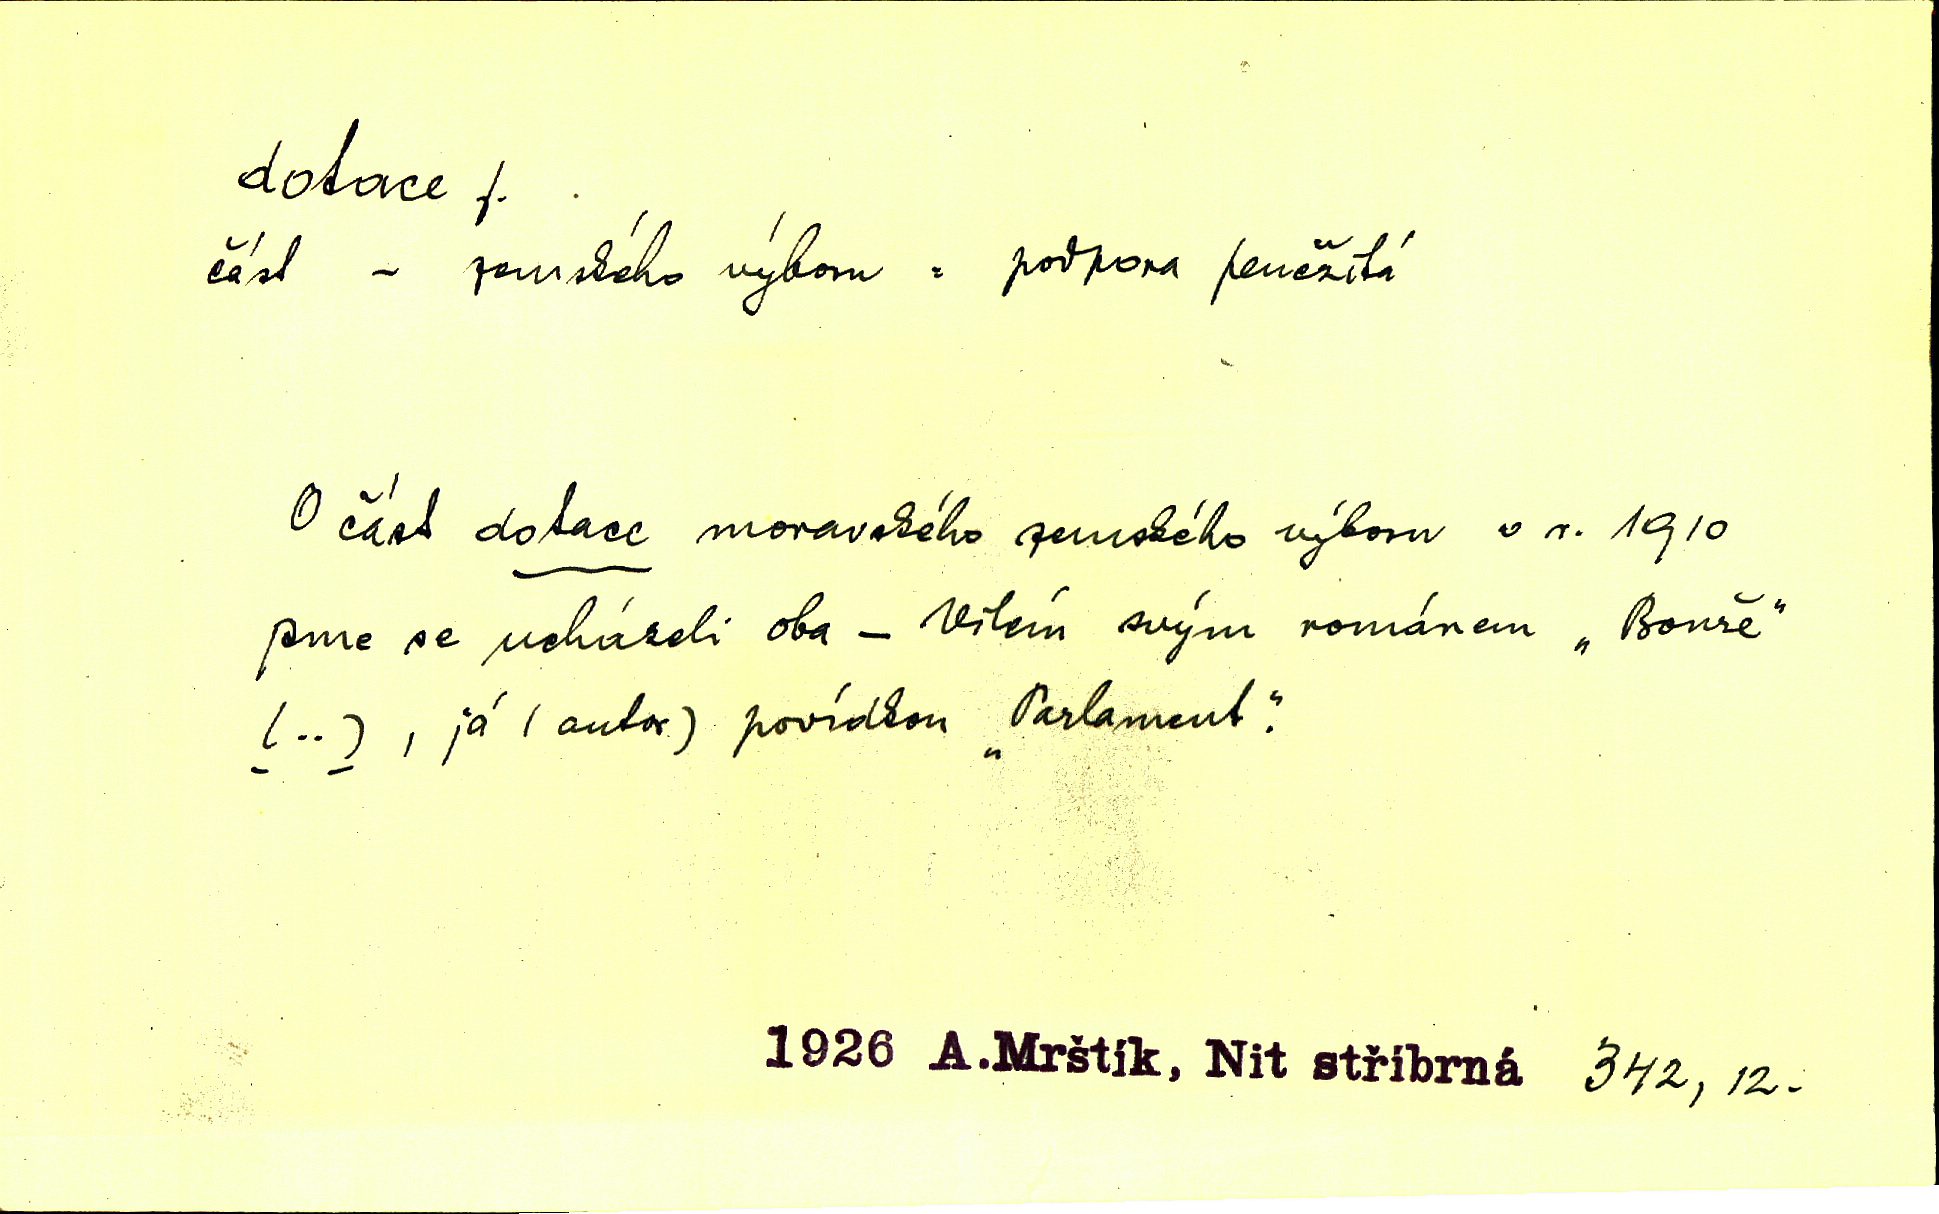 dotace f.
část – zemského výboru = podpora peněžitá
O část dotace moravského zemského výboru v r. 1910
jsme se ucházeli oba – Vilém svým románem „Bouře“
(..), já (autor) povídkou „Parlament“.
1926 A.Mrštík, Nit stříbrná 342, 12.